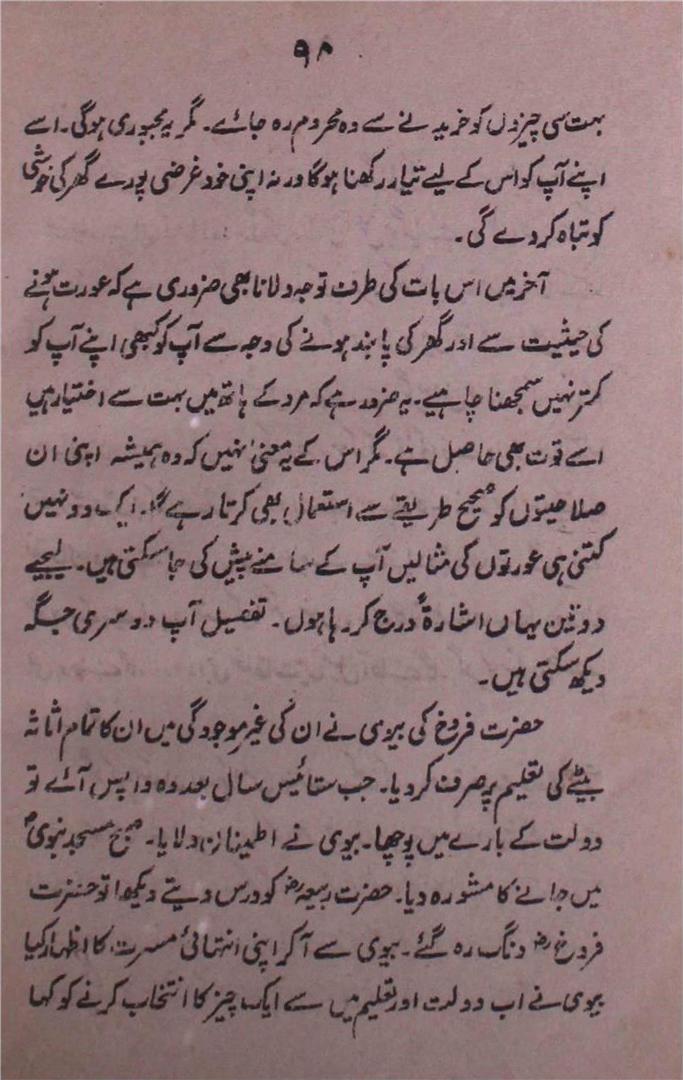 ۹۸
بہت سی چیزوں کو خریدنے سے وہ محروم رہ جائے۔ مگر یہ مجبوری ہوگی۔ اسے
اپنے آپ کو اس کے لیے تیار رکھنا ہوگا ورنہ اپنی خود غرضی پورے گھر کی خوشی
کو تباہ کر دے گی۔
آخر میں اس بات کی طرف توجہ دلانا بھی ضروری ہے کہ عورت ہونے
کی حیثیت سے اور گھر کی پابند ہونے کی وجہ سے آپ کو کبھی اپنے آپ کو
کمتر نہیں سمجھنا چاہیے۔ یہ ضرور ہے کہ مرد کے ہاتھ میں بہت سے اختیار ہیں
اسے قوت بھی حاصل ہے۔ مگر اس کے یہ معنی نہیں کہ وہ ہمیشہ اپنی ان
صلاحیتوں کو صحیح طریقے سے استعمال بھی کرتا رہے گا۔ ایک دو نہیں
کتنی ہی عورتوں کی مثالیں آپ کے سامنے پیش کی جا سکتی ہیں۔ لیجیے
دو تین یہاں اشارۃً درج کر رہا ہوں۔ تفصیل آپ دوسری جگہ
دیکھ سکتی ہیں۔
حضرت فروخ کی بیوی نے ان کی غیر موجودگی میں ان کا تمام اثاثہ
بیٹے کی تعلیم پر صرف کر دیا۔ جب ستائیس سال بعد وہ واپس آئے تو
دولت کے بارے میں پوچھا۔ بیوی نے اطمینان دلایا۔ صبح مسجد نبویؐ
میں جانے کا مشورہ دیا۔ حضرت ربیعہؒ کو درس دیتے دیکھا تو حضرت
فروخؒ دنگ رہ گئے۔ بیوی سے آ کر اپنی انتہائی مسرت کا اظہار کیا
بیوی نے اب دولت اور تعلیم میں سے ایک چیز کا انتخاب کرنے کو کہا